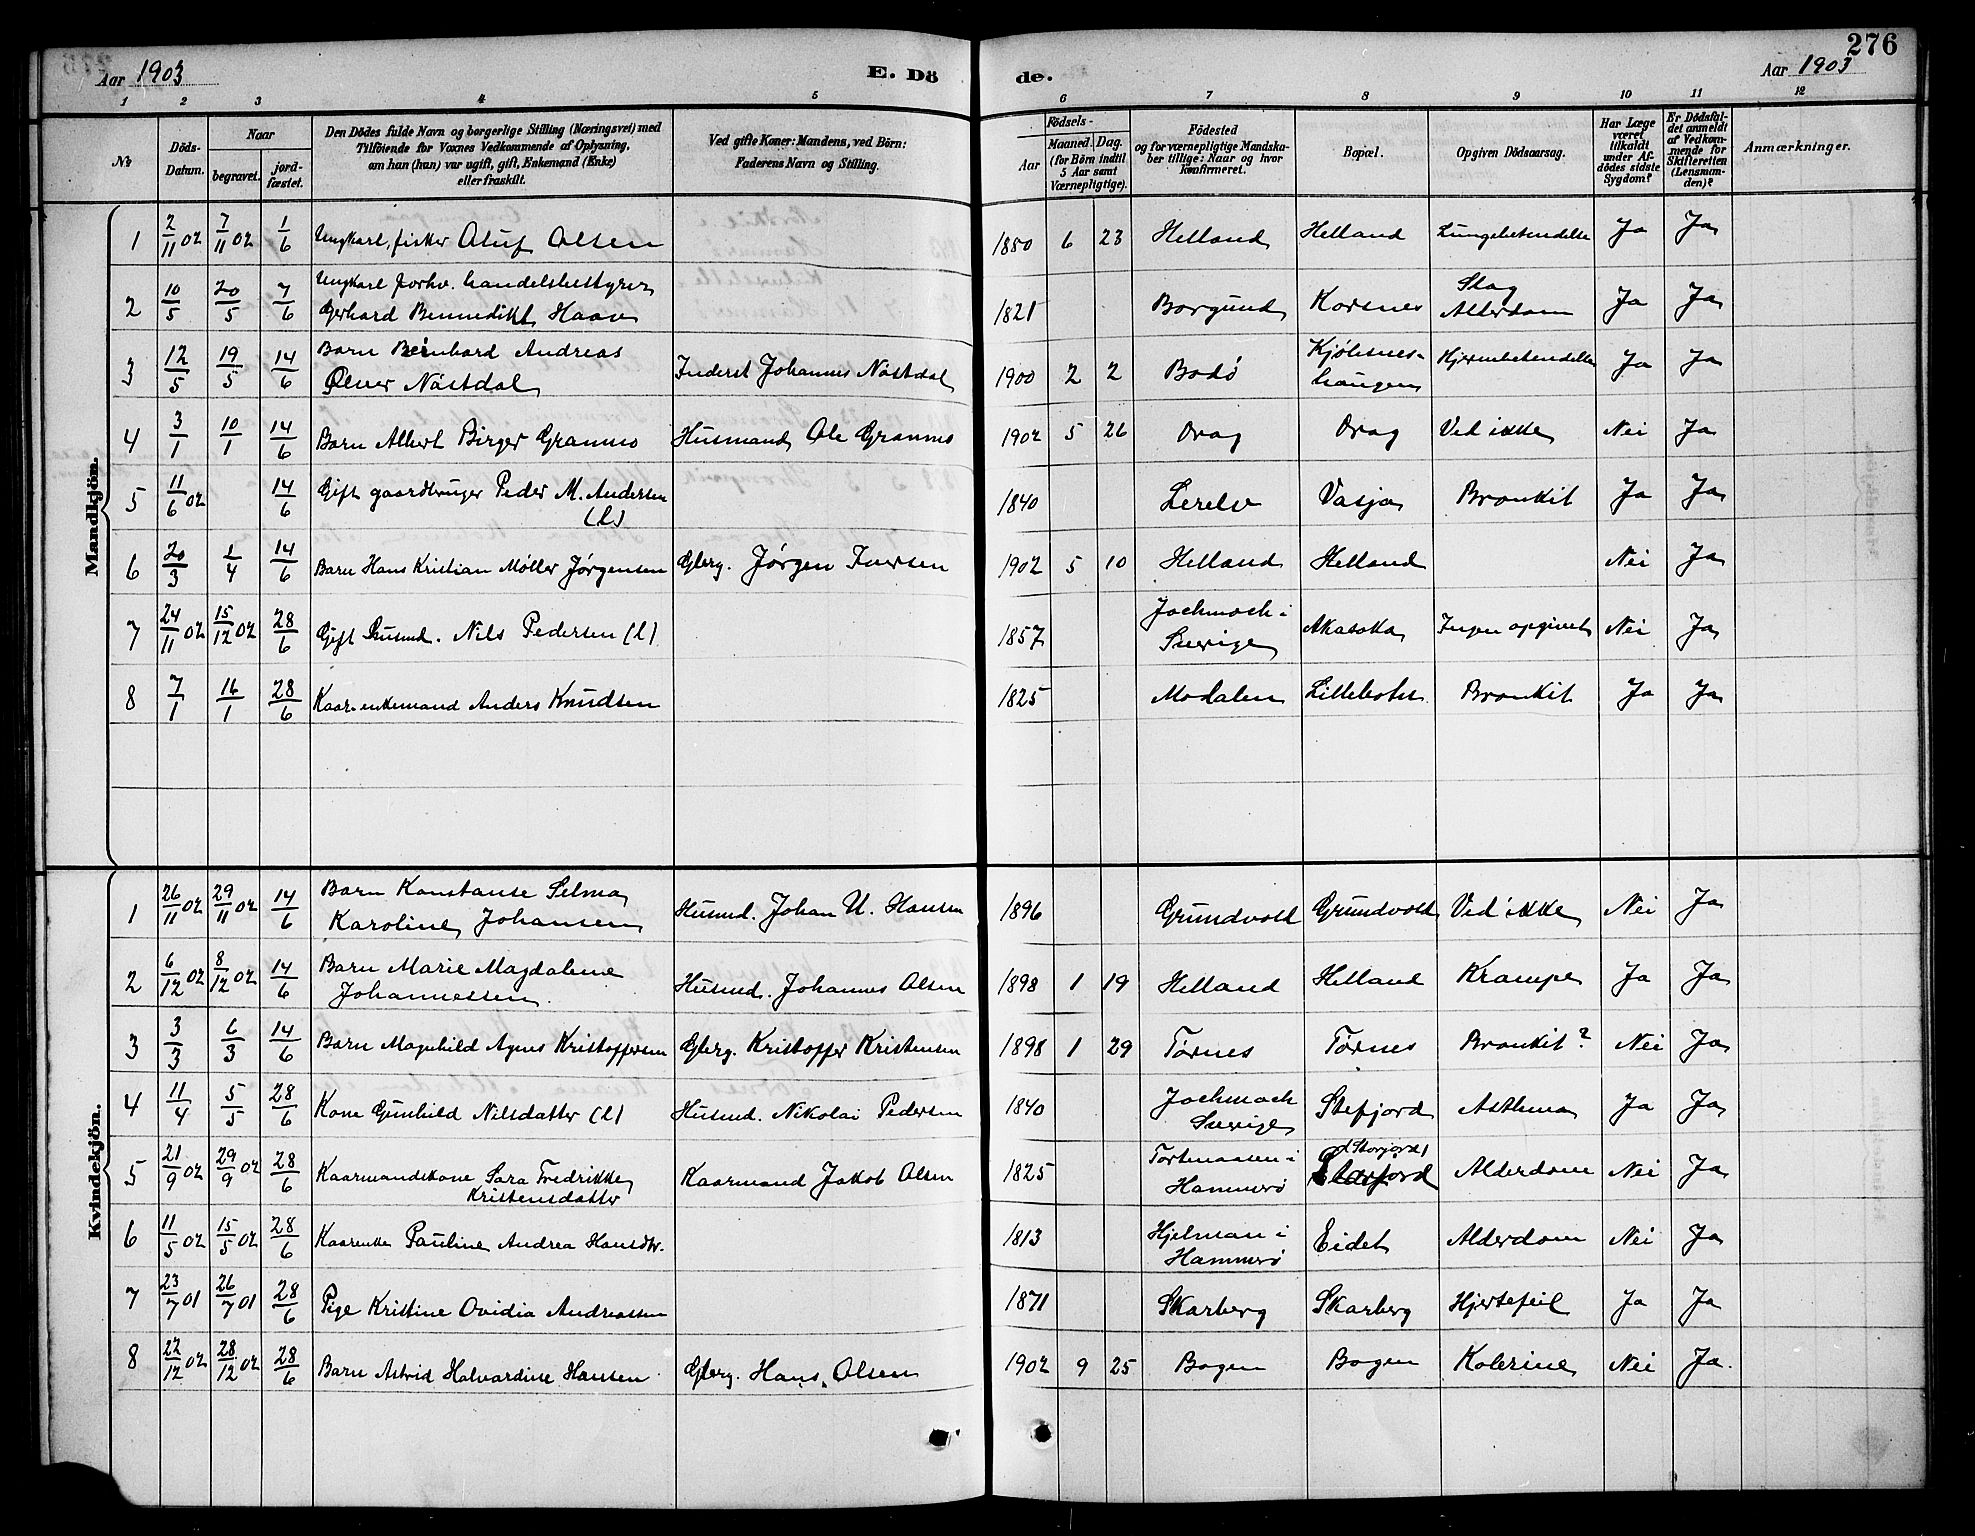 276
Aar 1903
E. Dö
de.
Aar 1903
1 2 3 4 5 6 7 8 9 10 11 12
No
Döds-
Datum.
Naar
begravet.
jord-
fæstet.
Den Dödes fulde Navn og borgerlige Stilling (Næringsvei) med
Tilföiende for Voxnes Vedkommende af Oplysning,
om han (hun) var ugift, gift, Enkemand (Enke)
eller fraskilt.
Ved gifte Koner: Mandens, ved Börn:
Faderens Navn og Stilling.
Födsels-
Aar
Maaned. Dag.
(for Börn indtil
5 Aar samt
Værnepligtige).
Födested
og for værnepligtige Mandska-
ber tillige: Naar og hvor
konfirmeret.
Bopæl.
Opgiven Dödsaarsag.
Har Læge
været
tilkaldt
under Af-
dödes sidste
Sygdom?
Er Dödsfal-
det anmeldt
af Vedkom-
mende for
Skifteretten
(Lensman-
den)?
Anmærkninger.
Mandkjön.
1 2/11 02 7/11 02 1/6 Ungkarl, fisker Oluf Olsen 1880 6 23 Helland Helland Lungebetendelse Ja Ja
2 10/5 20/5 7/6 Ungkarl forhv. handelsbestyrer
Gerhard Bennedikt Haave 1821 Borgund Korsnes Slag
Alderdom Ja Ja
3 12/5 19/5 14/6 Barn Bernhard Andreas
Ølner Nøstdal Inderst Johannes Nøstdal 1900 2 2 Bodø Kjølsnes-
haugen Hjernebetendelse Ja Ja
4 3/1 10/1 14/6 Barn Albert Birger Grannes Husmand Ole Grannes 1902 5 26 Drag Drag Ved ikke Nei Ja
5 11/6 02 14/6 Gift gaardbruger Peder M. Andersen
(l) 1840 Lerelv Vasja Bronkit Ja Ja
6 20/3 1/4 14/6 Barn Hans Kristian Møller Jørgensen Gbrg. Jørgen Iversen 1902 5 10 Helland Helland Nei Ja
7 24/11 02 15/12 02 28/6 Gift Husmd. Nils Pedersen (l) 1857 Jochmoch i
Sverige Akasoka Ingen opgivet Nei Ja
8 7/1 16/1 28/6 Kaar-enkemand Anders Knudsen 1825 Modalen Lillebotn Bronkit Ja Ja
Kvindekjön.
1 26/11 02 29/11 02 14/6 Barn Konstanse Selma
Karoline Johansen Husmd. Johan U. Hansen 1896 Grundvold Grundvold Ved ikke Nei Ja
2 6/12 02 8/12 02 14/6 Barn Marie Magdalene
Johannessen Husmd. Johannes Olsen 1898 1 19 Helland Helland Krampe Ja Ja
3 3/3 6/3 14/6 Barn Magnhild Agnes Kristoffersen Gbrg. Kristoffer Kristensen 1898 1 29 Tørnes Tørnes Bronkit? Nei Ja
4 11/4 5/5 28/6 Kone Gunhild Nilsdatter (l) Husmd. Nikolai Pedersen 1840 Jochmoch
Sverige Stefjord Asthma Ja Ja
5 21/9 02 29/9 02 28/6 Kaarmandskone Sara Fredrikke
Kristensdatter Kaarmand Jakob Olsen 1825 i
Hammerø (Storjord)
Alderdom Nei Ja
6 11/5 02 15/5 02 28/6 Kaarenke Pauline Andrea Hansdtr. 1813 Hjelman i
Hammerø Eidet Alderdom Nei Ja
7 23/7 01 26/7 01 28/6 Pige Kristine Ovidia Andreassen 1871 Skarberg Skarberg Hjertefeil Ja Ja
8 22/12 02 28/12 02 28/6 Barn Astrid Halvardine Hansen Gbrg. Hans Olsen 1902 9 25 Bogen Bogen Kolerine Nei Ja.